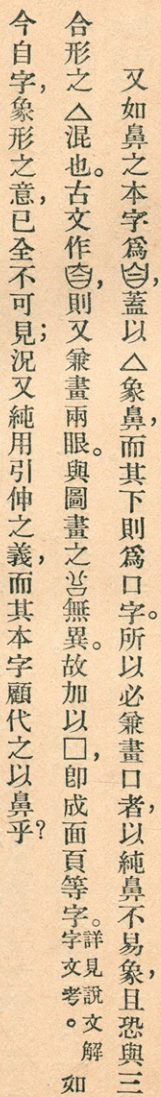 又如鼻之本字爲,蓋以△象鼻,而其下則爲口字。所以必兼畫口者,以純鼻不易象,且恐與三
合形之△混也。古文作,則又兼畫兩眼。與圖畫之無異。故加以囗,卽成面頁等字。詳見說文解字文考。如
今自字,象形之意,已全不可見;況又純用引伸之義,而其本字顧代之以鼻乎?